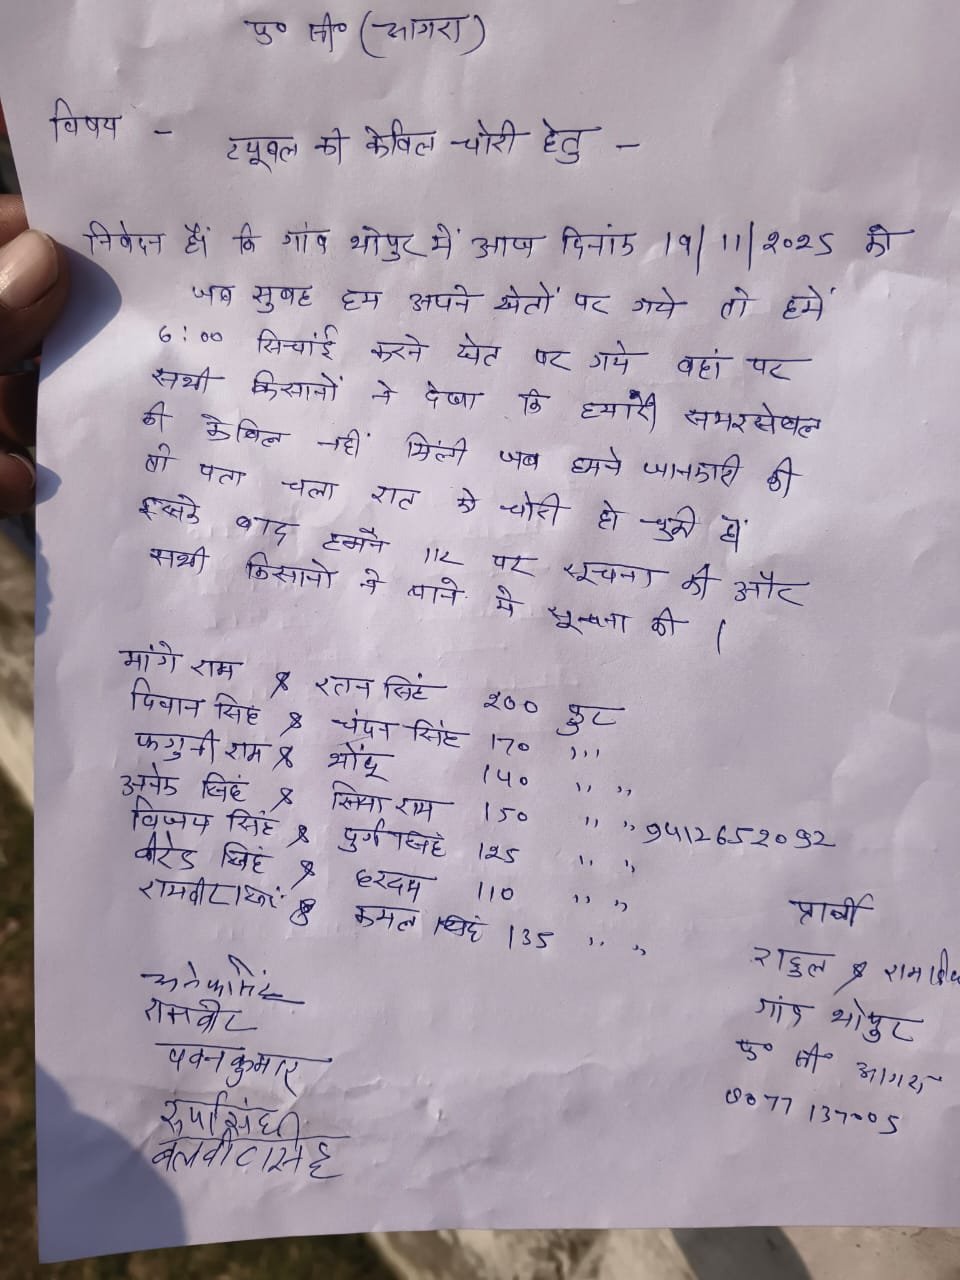 फ॰ सी॰ (आगरा)
विषय -
ट्यूवल की केविल चोरी हेतु -
निवेदन हैं कि गांव भोपुर में आज दिनांक 19/11/2025 को
जब सुबह हम अपने खेतों पर गये तो हमें
6:00 सिचांई करने खेत पर गये वहां पर
सभी किसानों ने देखा कि हमारी समरसेवल
की केविल नहीं मिली जब हमने जानकारी की
तो पता चला रात को चोरी हो चुकी हैं
इसके बाद हमने 112 पर सूचना की और
सभी किसानो ने थाने मे सूचना की |
मांगे राम & रतन सिंह 200 फुट
दिवान सिंह & चंदन सिंह 170 ,,,
फगुनी राम & भोंदू 140 ,, ,,
अनेक सिंह & सिया राम 150 ,, ,, 9412652092
विजय सिंह & दुर्ग सिंह 125 ,, ,,
वीरेन्द्र सिंह & हरदम 110 ,, ,,
रामवीर & कमल सिंह 135 ,, ,,
प्रार्थी
राहुल &
गांव भोपुर
फ॰ सी॰ आगरा
8077137005
रामवीर
पवन कुमार
बलवीर सिंह